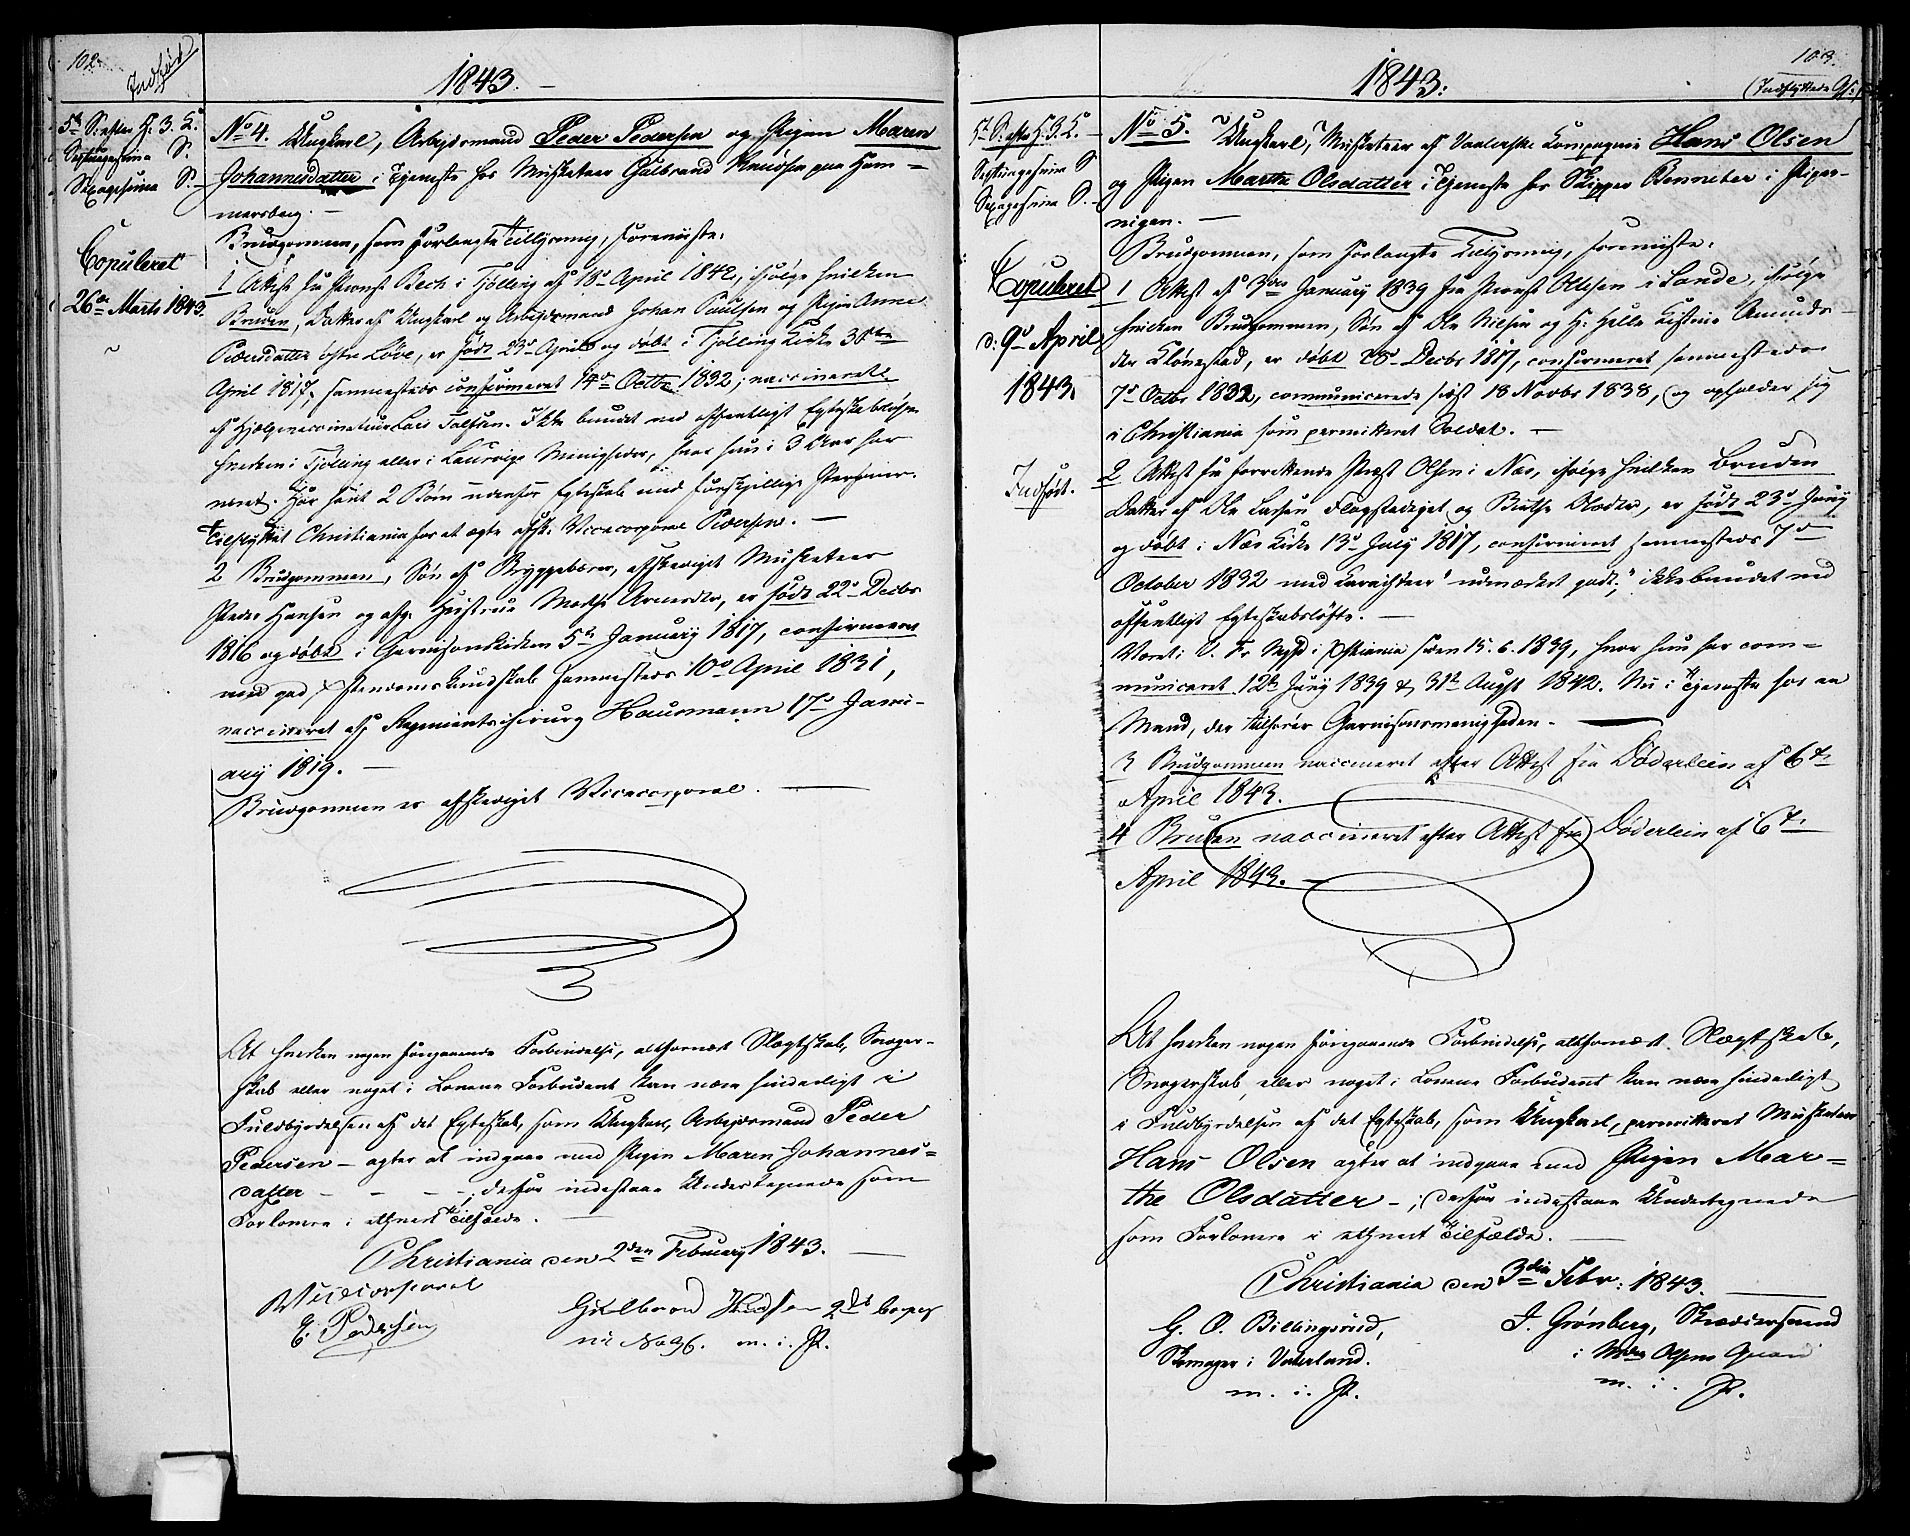 102.
Indført
1843.
5te S. efter H. 3. K.
Septuagesima S.
Sexagesima S.
Copuleret
26de Marts 1843.
No 4. Ungkarl, Arbejdsmand Peder Pedersen og Pigen Maren
Johannesdatter i Tjeneste hos Musketeer Gulbrand Knudsen paa Ham-
mersberg.
Brudgommen, som forlangte Tillysning, foreviiste:
1 Attest fra Provst Bech i Tjølling af 18de April 1842, ifølge hvilken
Bruden, Datter af Ungkarl og Arbejdsmand Johan Paulsen og Pigen Anne
Pedersdatter østre Løve, er født 23de April og døbt i Tjølling Kirke 30te
April 1817, sammesteds confirmeret 14de Octbr 1832; vaccineret
af Hjælpevaccinateur Lars Tolfsen. Ikke bundet ved offentligt Egteskabsløfte
hverken i Tjølling eller i Laurvigs Menigheder, hvor hun i 3 Aar har
været. Har havt 2 Børn udenfor Egteskab med forskjellige Personer.
Tilflyttet Christiania for at ægte afsk. Vicecorporal Pedersen.
2 Brudgommen, Søn af Bryggebærer, afskediget Musketeer
Peder Hansen og afg. Hustrue Marthe Arnesdtr, er født 22de Decbr
1816 og døbt i Garnisonskirken 5te January 1817, confirmeret
med god Christendomskundskab sammesteds 10de April 1831,
vaccineret af Regimentschirurg Hausmann 17de Janu-
ary 1819.
Brudgommen er afskediget Vicecorporal.
At hverken nogen foregaaende Forbindelse, althornæst Slægtskab, Svoger-
skab eller noget i Lovene Forbudent kan være hinderligt i
Fuldbyrdelsen af det Egteskab, som Ungkarl, Arbejdsmand Peder
Pedersen – agter at indgaae med Pigen Maren Johannes-
datter – – – –; derfor indestaae Undertegnede som
Forlovere i ethvert Tilfælde.
Christiania den 2den February 1843.
Vicecorporal
E. Pedersen
Gulbrand Knudsen
No 96. m. i. P.
103.
(Indflyttede
1843:
5te S. efter H. 3. K.
Septuagesima S
Sexagesima S.
Copuleret
d: 9de April
1843.
Indført.
No 5. Ungkarl, Musketeer af Valerske Kompagnie Hans Olsen
og Pigen Marthe Olsdatter i Tjeneste hos Skipper Benneter i Piper-
vigen.
Brudgommen, som forlangte Tillysning, foreviiste:
1 Attest af 3die January 1839 fra Provst Olsen i Sande, ifølge
hvilken Brudgommen, Søn af Ole Nilsen og H. Helle Kistine Amunds-
dtr Kløvestad, er døbt 28de Decbr 1817, confirmeret sammesteds
7de Octbr 1832, communicerede sidst 18 Novbr 1838, og opholder sig
i Christiania som permitteret Soldat.
2 Attest fra forrettende Præst Olsen i Næs, ifølge hvilken Bruden
Datter af Ole Larsen Flogstadejet og Birthe Olsdtr, er født 23de Juny
og døbt i Næs Kirke 13de July 1817, confirmeret sammesteds 7de
October 1832 med Karakteer "udmærket godt", ikke bundet ved
offentligt Egteskabsløfte.
Været i V. Fr Mgd i Xstiania siden 15. 6. 1839, hvor hun har com-
municeret 12te Juny 1839 & 31te Augst 1842. Nu i Tjeneste hos en
Mand, der tilhører Garnisonsmenigheden.
3 Brudgommen vaccineret efter Attest fra Döderlein af 6te
April 1843.
4 Bruden vaccineret efter Attest fra Döderlein af 6te
April 1843.
At hverken nogen foregaaende Forbindelse, althornæst Slægtskab,
Svogerskab, eller noget i Lovene Forbudent kan være hinderligt
i Fuldbyrdelsen af det Egteskab, som Ungkarl, permitteret Musketeer
Hans Olsen agter at indgaae med Pigen Mar-
the Olsdatter –; derfor indestaae Undertegnede
som Forlovere i ethvert Tilfælde.
Christiania den 3die Febr: 1843.
G. O. Billingsrud,
Skomager i Vaterland.
m. i. P.
J. Grønberg, Skrædersvend
i Mdm Olsens Gaard
m. i. P.